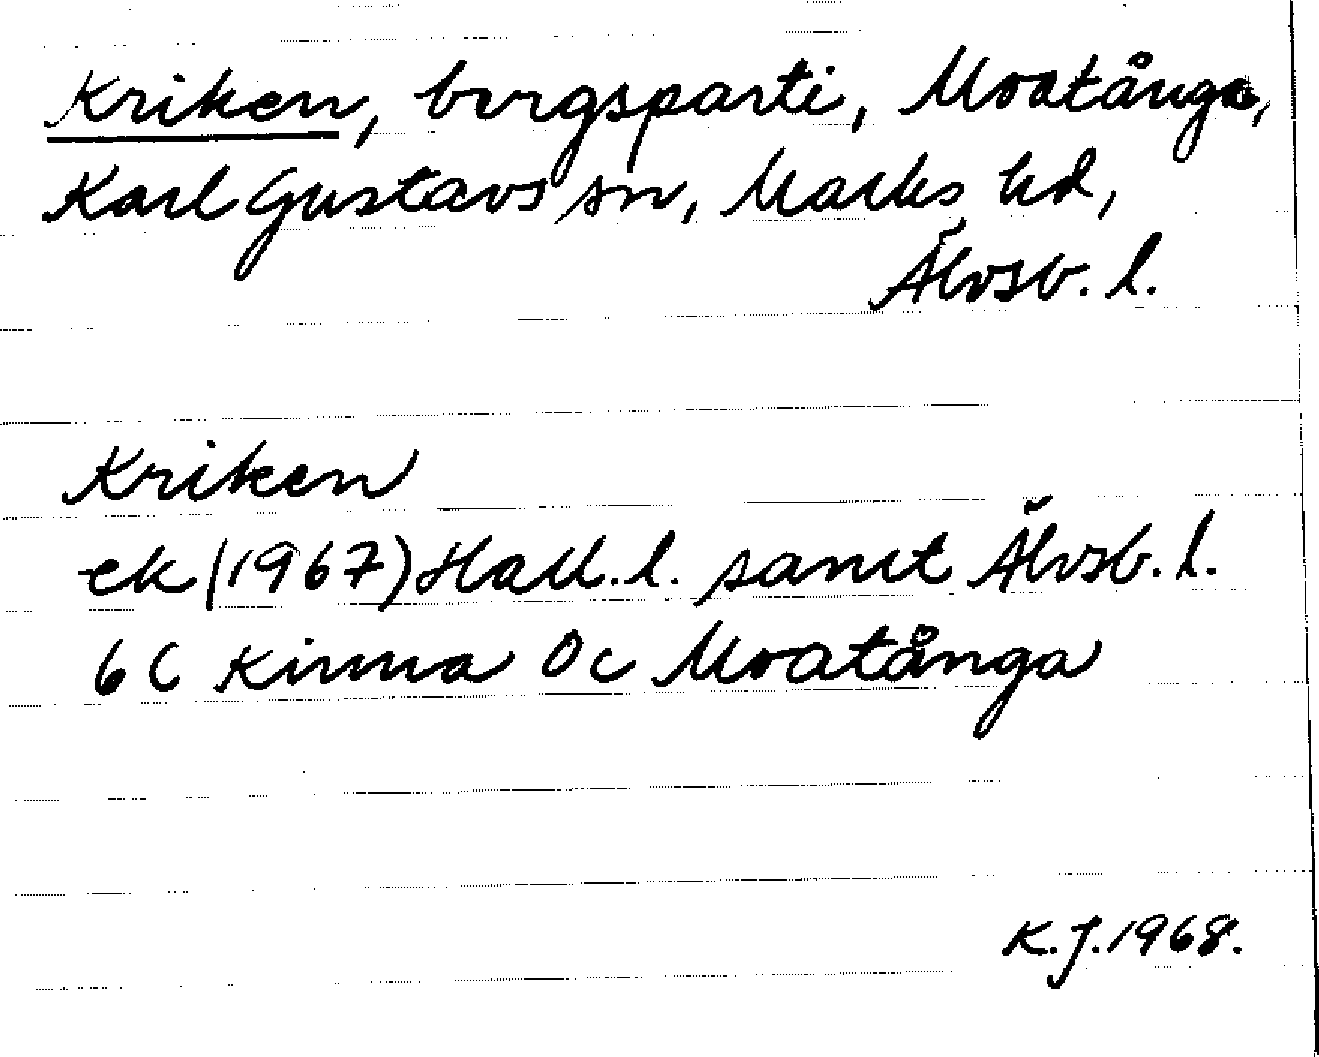 Kriken, bergsparti, Moatånga,
Karl Gustavs sn, Marks hd,
Älvsb. l.
Kriken
ek (1967) Hall. l. samt Älvsb. l.
6 C Kinna 0 c Moatånga
K.J. 1968.